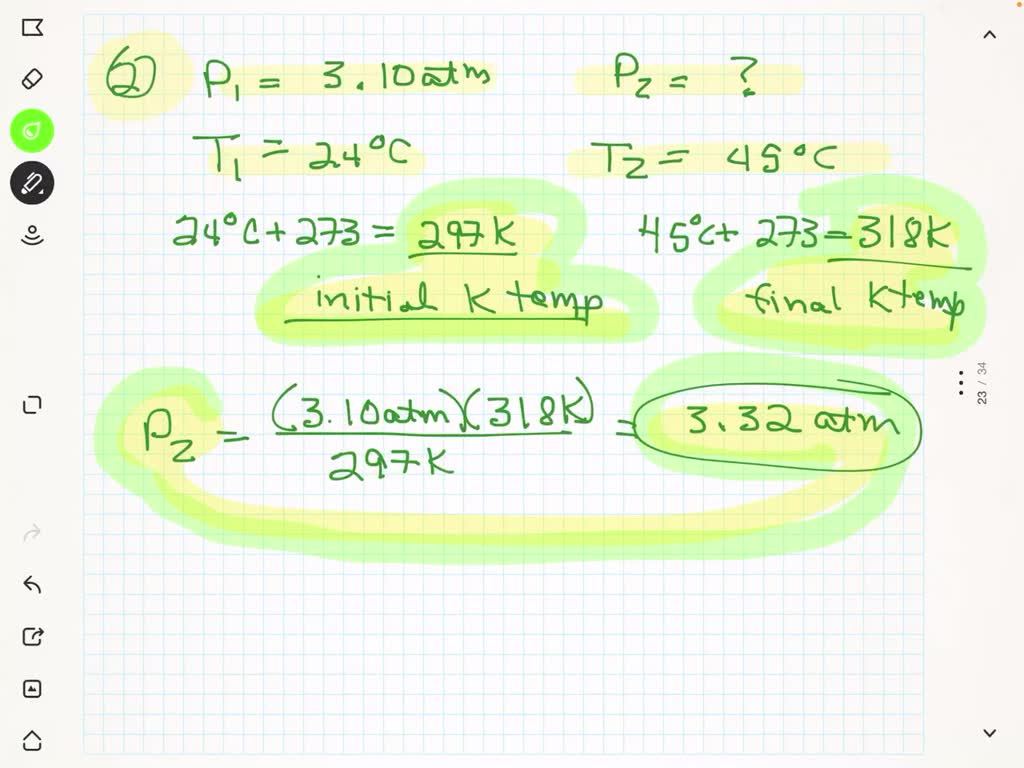 2) P₁ = 3.10atm P₂ = ?
T₁ = 24°C T₂ = 45°C
24°C + 273 = 297K 45°C + 273 = 318K
initial K temp final K temp
P₂ = (3.10atm)(318K) / 297K = 3.32 atm
23 / 34